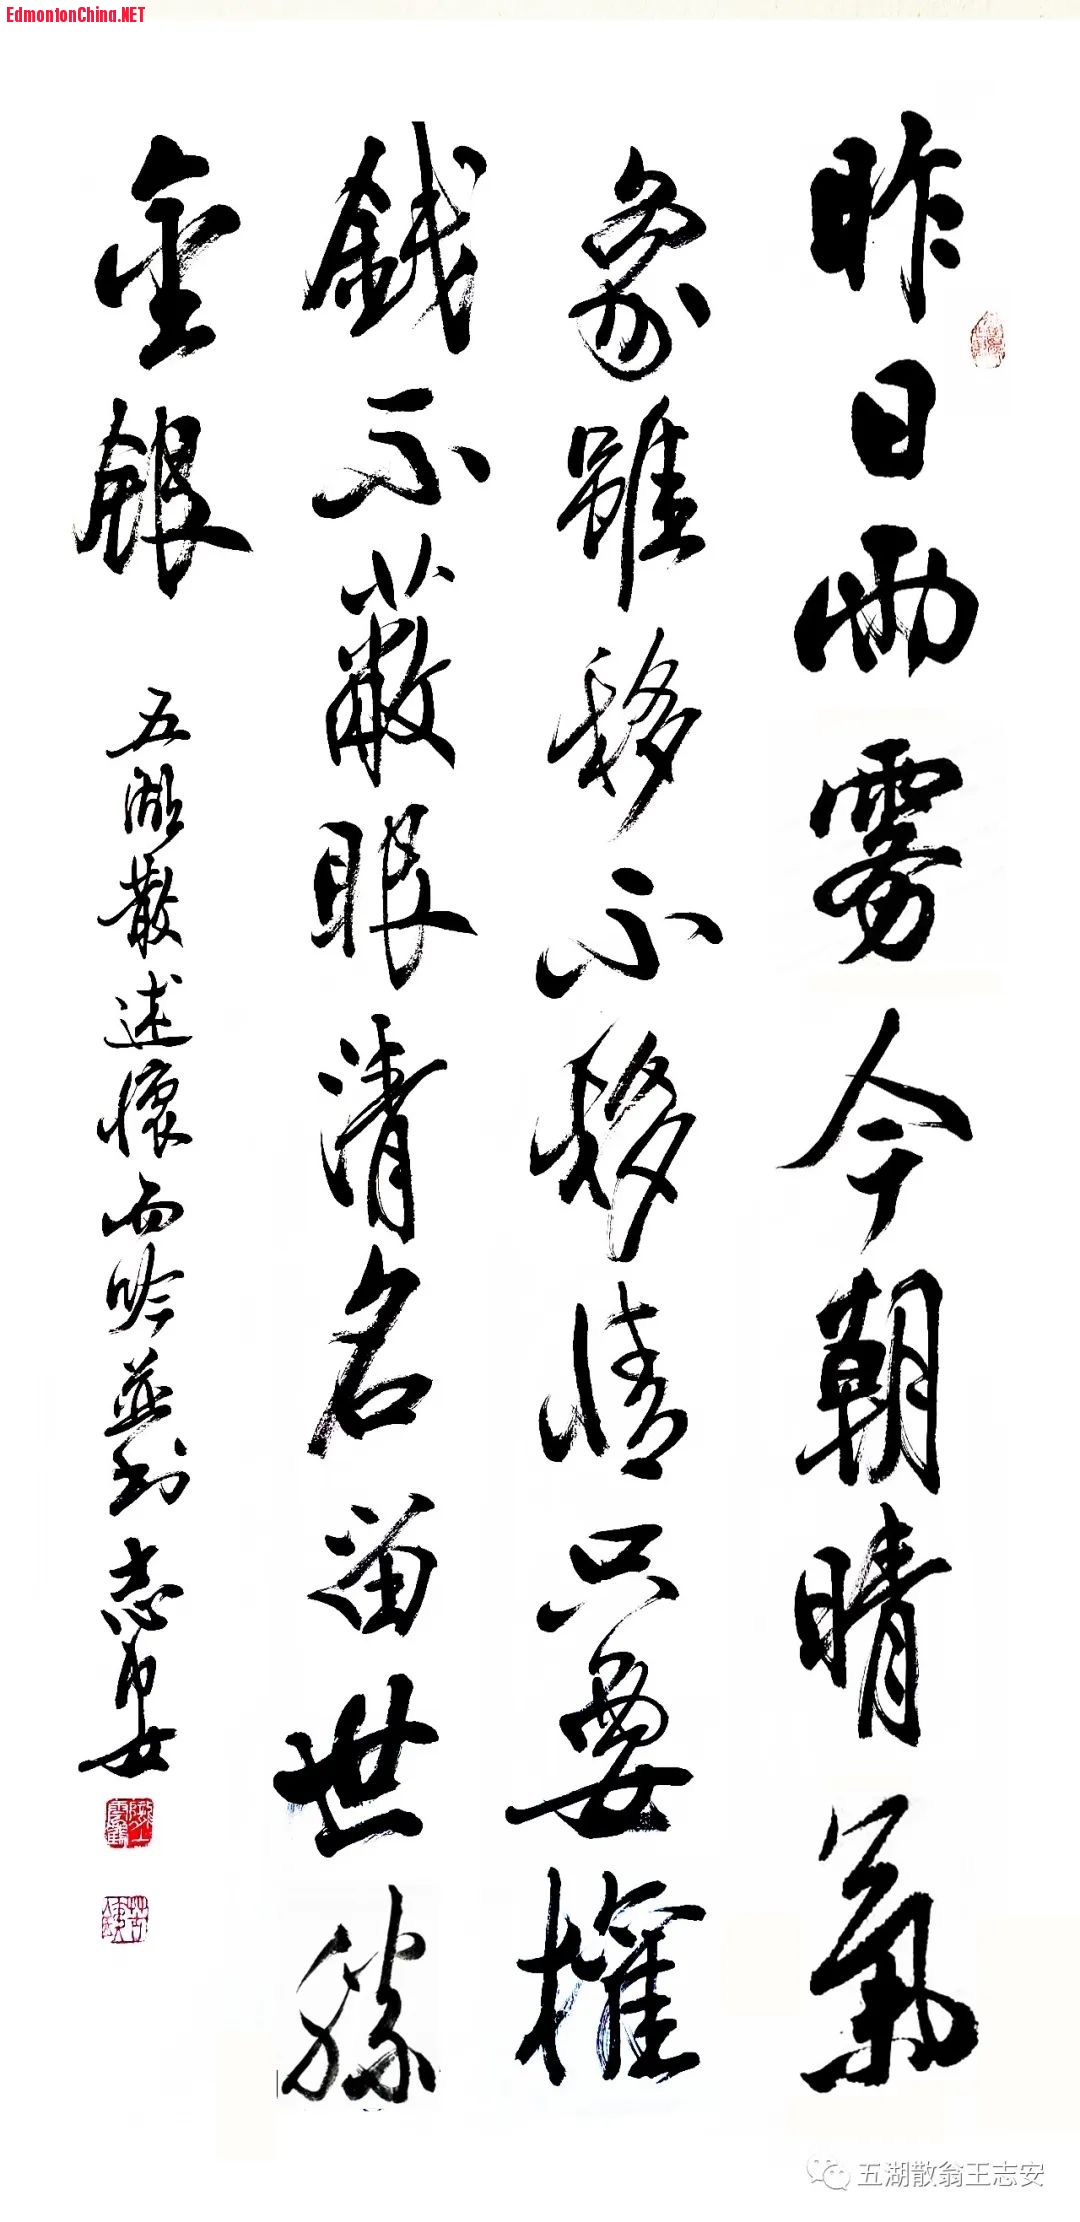 EdmontonChina.NET
昨日雨雾今朝晴氣
象雖移不移情只要權
錢不蔽眼清名留世勝
金銀
五湖散述懷而吟並书志安
五湖散翁王志安